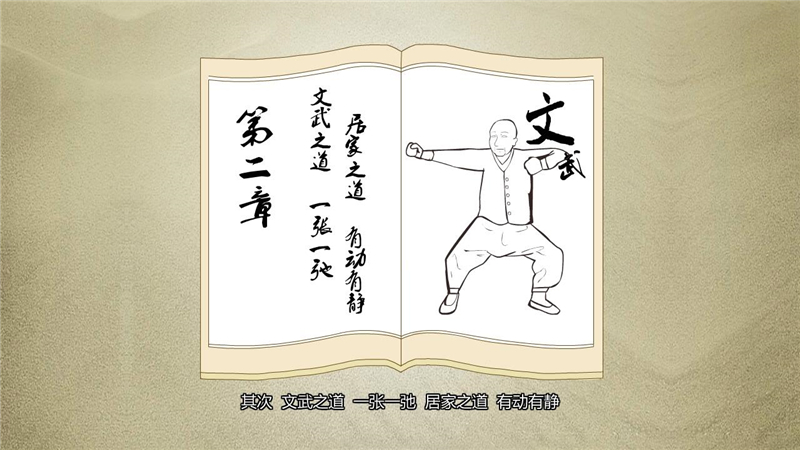 第二章
文武之道 一张一弛
居家之道 有动有静
文武
其次 文武之道 一张一弛 居家之道 有动有静